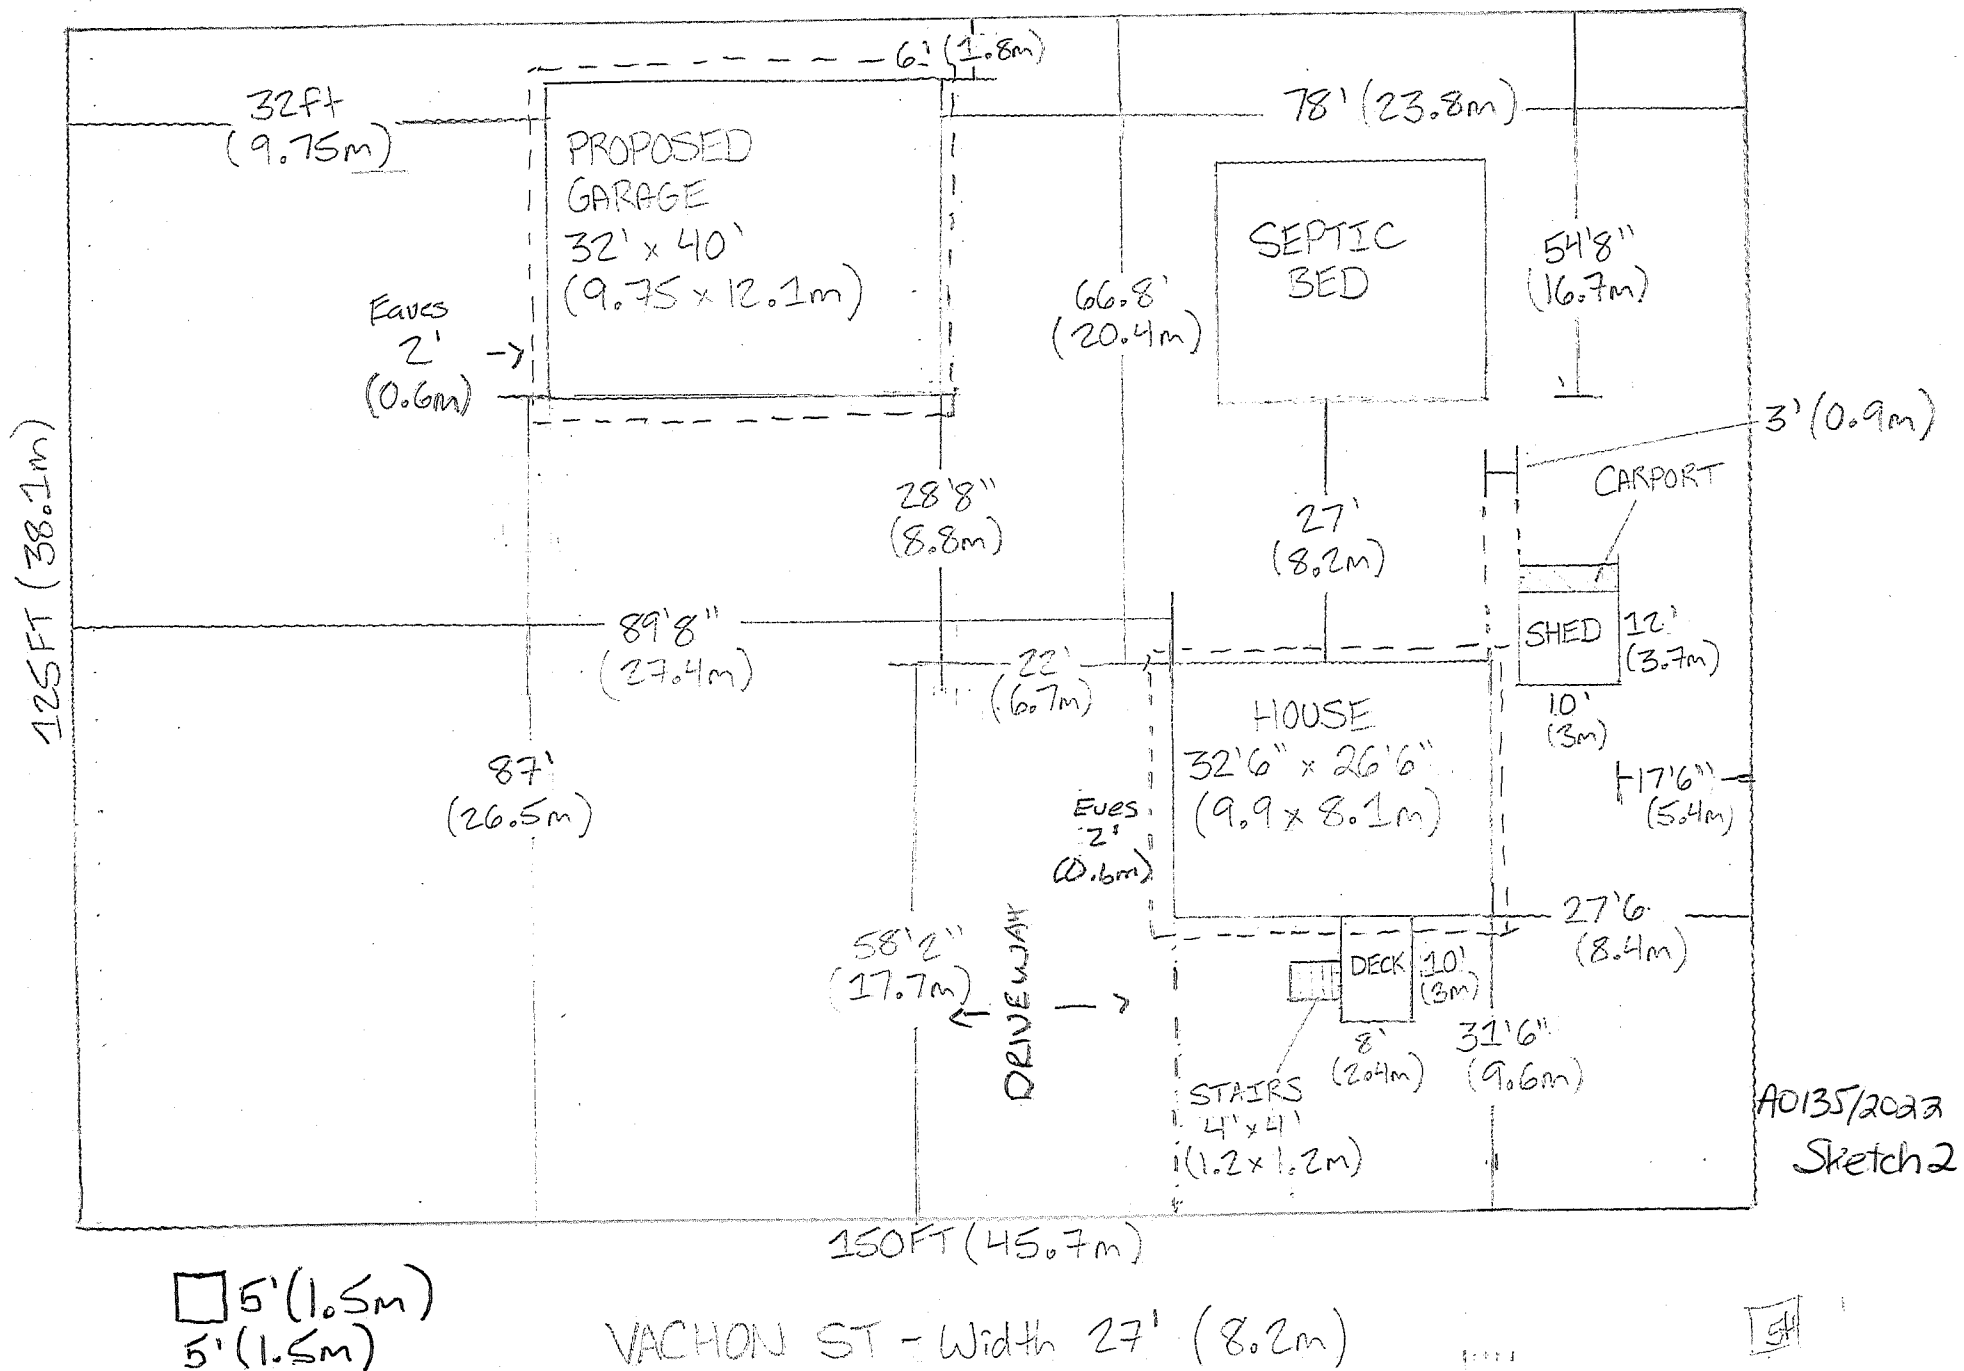 6' (1.8m)
32ft
(9.75m)
78' (23.8m)
PROPOSED
GARAGE
32' x 40'
(9.75 x 12.1m)
SEPTIC
BED
54'8"
(16.7m)
66.8'
(20.4m)
Eaves
2'
(0.6m)
3' (0.9m)
CARPORT
125FT (38.1m)
28'8"
(8.8m)
27'
(8.2m)
89'8"
(27.4m)
22'
(6.7m)
SHED
12'
(3.7m)
10'
(3m)
HOUSE
32'6" x 26'6"
(9.9 x 8.1m)
87'
(26.5m)
17'6"
(5.4m)
Eves
2'
(0.6m)
27'6
(8.4m)
58'2"
(17.7m)
DRIVEWAY
DECK
10'
(3m)
8'
(2.4m)
31'6"
(9.6m)
STAIRS
4' x 4'
(1.2 x 1.2m)
A0135/2022
Sketch 2
150FT (45.7m)
5' (1.5m)
5' (1.5m)
VACHON ST - Width 27' (8.2m)